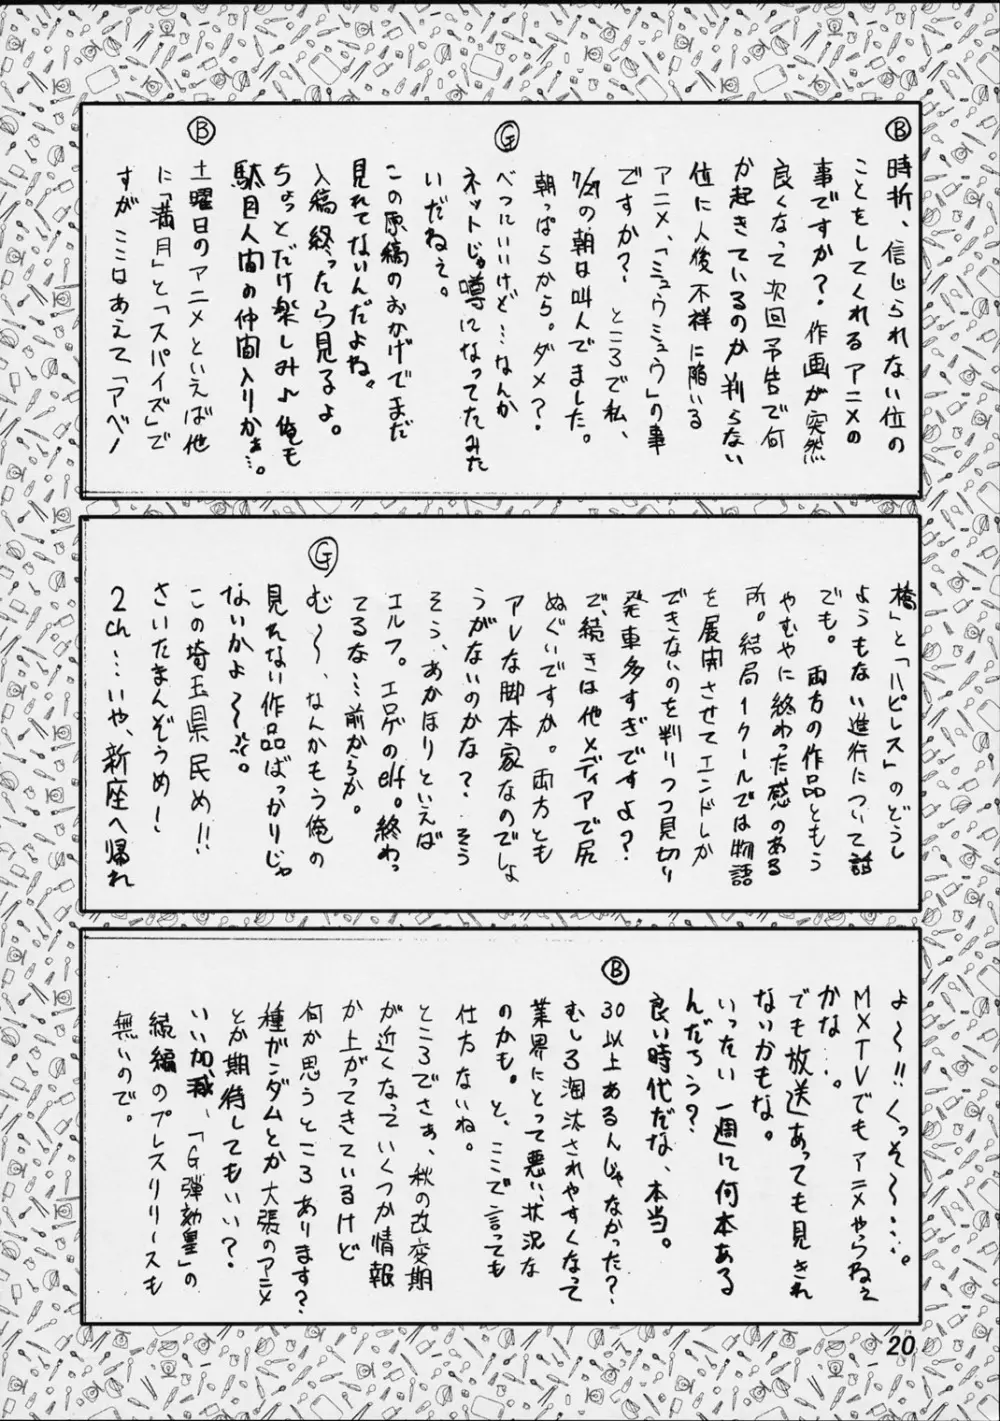 Ⓑ
時折、信じられない位の
ことをしてくれるアニメの
事ですか?作画が突然
良くなって次回予告で何
か起きているのか判らない
位に人後不祥に陥いる
アニメ、「ミュウミュウ」の事
ですか?ところで私、
7/27の朝は叫んでました。
朝っぱらから。ダメ?
Ⓖ
べつにいいけど…なんか
ネットじゃ噂になってたみた
いだねぇ。
この原稿のおかげでまだ
見れてないんだよね。
入稿終ったら見るよ。
ちょっとだけ楽しみ♪俺も
駄目人間の仲間入りかぁ…。
Ⓑ
土曜日のアニメといえば他
に「満月」と「スパイズ」で
すが、ここはあえて「アベノ
橋」と「ハピレス」のどうし
ようもない進行について話
でも。両方の作品ともう
やむやに終わった感のある
所。結局1クールでは物語
を展開させてエンドしか
できないのを判りつつ見切り
発車多すぎですよ?
で、続きは他メディアで尻
ぬぐいですか。両方とも
アレな脚本家なのでしょ
うがないのかな?そう
そう、あかほりといえば
エルフ。エロゲのelf。終わっ
てるな…前からか。
Ⓖ
む〜、なんかもう俺の
見れない作品ばっかりじゃ
ないかよ〜。
この埼玉県民め!!
さいたまんぞうめ!
2ch…いや、新座へ帰れ
よ〜!!くっそ〜…。
MXTVでもアニメやらねぇ
かな…。
でも放送あっても見きれ
ないかもな。
いったい一週に何本ある
んだろう?
良い時代だな、本当。
Ⓑ
30以上あるんじゃなかった?
むしろ淘汰されやすくなって
業界にとって悪い状況な
のかも。と、ここで言っても
仕方ないね。
ところでさぁ、秋の改変期
が近くなっていくつか情報
か上がってきているけど
何か思うところあります?
種ガンダムとか大張のアニメ
とか期待してもいい?
いい加減、「G弾劾凰」の
続編のプレスリリースも
無いので。
20